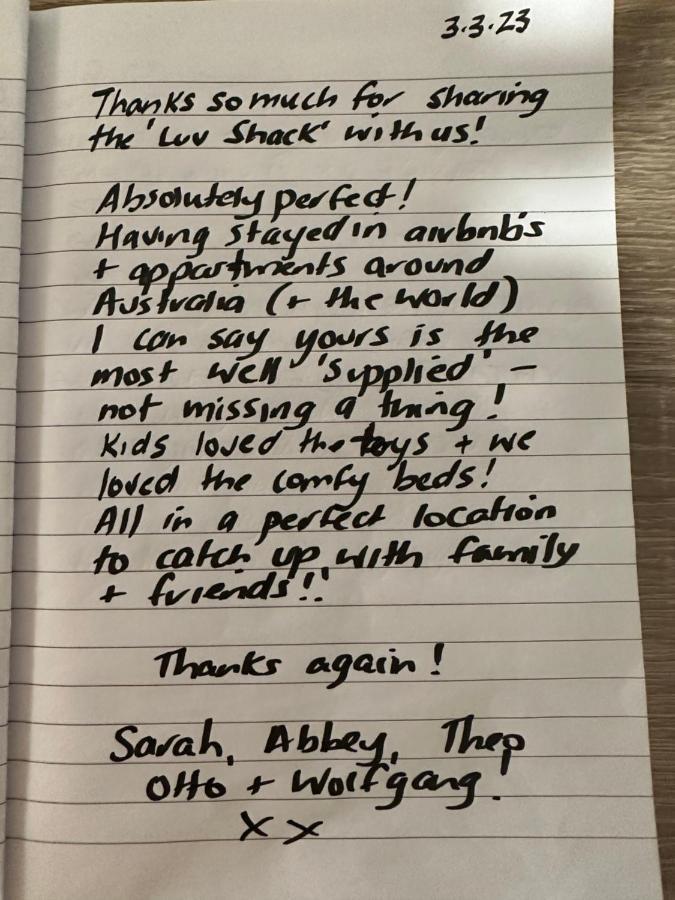 3.3.23
Thanks so much for sharing
the 'Luv Shack' with us!
Absolutely perfect!
Having stayed in airbnb's
+ appartments around
Australia (+ the world)
I can say yours is the
most well 'supplied' -
not missing a thing!
Kids loved the toys + we
loved the comfy beds!
All in a perfect location
to catch up with family
+ friends!!
Thanks again!
Sarah, Abbey,
Otto + Wolfgang!
xx